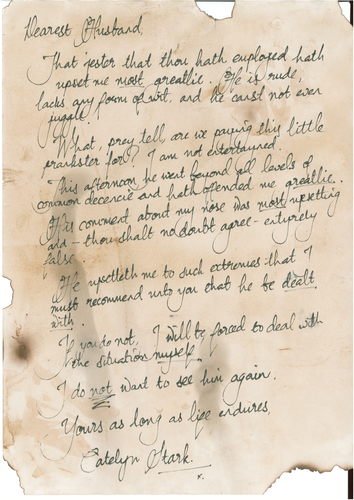 Dearest Husband,
That jester that thou hath employed hath
upset me most greatlie. He is rude,
lacks any form of wit, and he canst not even
juggle.
What, prey tell, are we paying this little
prankster for? I am not entertained.
This afternoon he went beyond all levels of
common decencie and hath offended me greatlie.
His comment about my nose was most upsetting
and - thou shalt no doubt agree - entyrely
false.
He upsetteth me to such extremes that I
must recommend unto you that he be dealt
with.
If you do not, I will be forced to deal with
the situation myself.
I do not want to see him again.
Yours as long as life endures,
Catelyn Stark.
x.